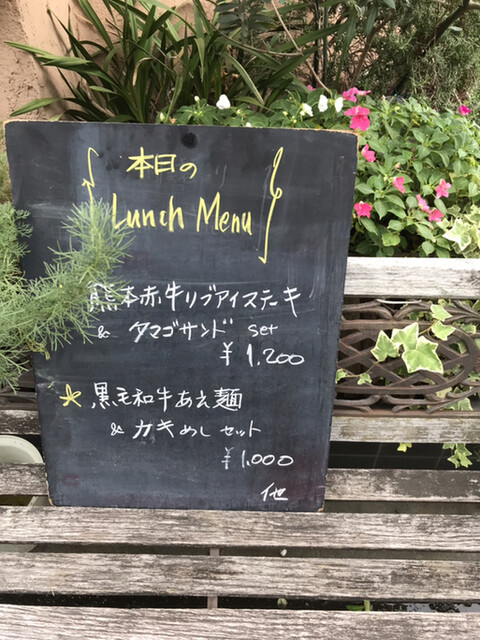 本日の
Lunch Menu
熊本赤牛リブアイステーキ
& タマゴサンド set
¥1,200
黒毛和牛あえ麺
& カキめしセット
¥1,000
他